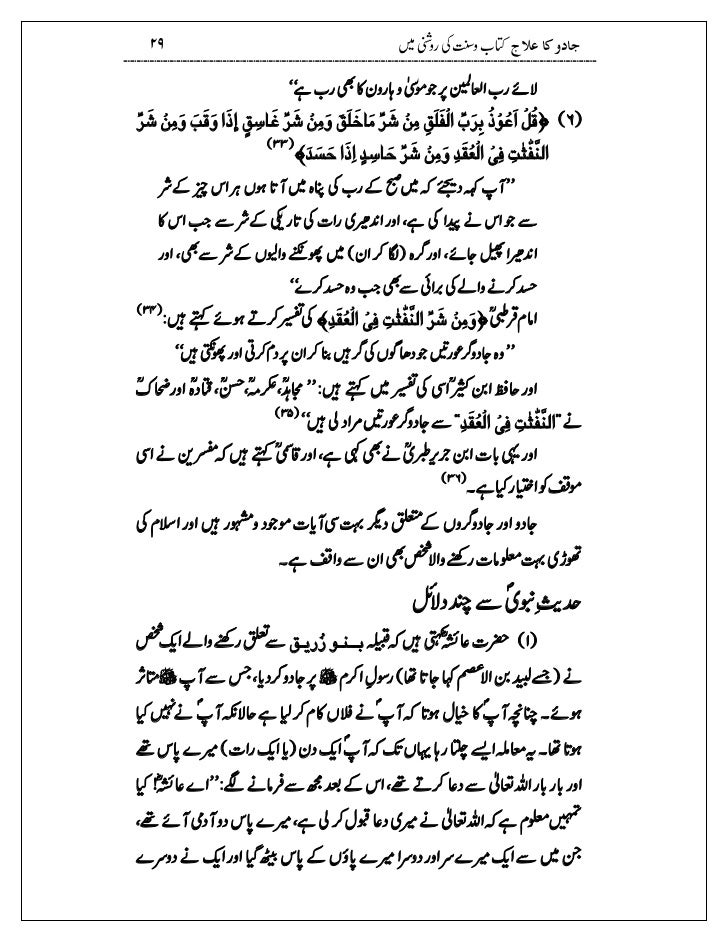 جادو کا علاج کتاب وسنت کی روشنی میں ۲۹
لائے رب العالمین پر جو موسیٰ و ہارون کا بھی رب ہے‘‘
(۶) ﴿قُلْ اَعُوْذُ بِرَبِّ الْفَلَقِ مِنْ شَرِّ مَاخَلَقَ وَمِنْ شَرِّ غَاسِقٍ إِذَا وَقَبَ وَمِنْ شَرِّ
النَّفّٰثٰتِ فِیْ الْعُقَدِ وَمِنْ شَرِّ حَاسِدٍ إِذَا حَسَدَ﴾(۳۳)
’’آپ کہہ دیجئے کہ میں صبح کے رب کی پناہ میں آتا ہوں ہر اس چیز کے شر
سے جو اس نے پیدا کی ہے، اور اندھیری رات کی تاریکی کے شر سے جب اس کا
اندھیرا پھیل جائے، اور گرہ (لگا کر ان) میں پھونکنے والیوں کے شر سے بھی، اور
حسد کرنے والے کی برائی سے بھی جب وہ حسد کرے‘‘
امام قرطبیؒ ﴿وَمِنْ شَرِّ النَّفّٰثٰتِ فِیْ الْعُقَدِ﴾ کی تفسیر کرتے ہوئے کہتے ہیں:(۳۴)
’’وہ جادوگر عورتیں جو دھاگوں کی گرہیں بنا کر ان پر دم کرتی اور پھونکتی ہیں‘‘
اور حافظ ابن کثیرؒ اسی کی تفسیر میں کہتے ہیں: ’’مجاہدؒ، عکرمہؒ، حسنؒ، قتادہؒ اور ضحاکؒ
نے ’’النَّفّٰثٰتِ فِیْ الْعُقَدِ‘‘ سے جادوگر عورتیں مراد لی ہیں‘‘(۳۵)
اور یہی بات ابن جریر طبریؒ نے بھی کہی ہے، اور قاسمیؒ کہتے ہیں کہ مفسرین نے اسی
موقف کو اختیار کیا ہے۔(۳۶)
جادو اور جادوگروں کے متعلق دیگر بہت سی آیات موجود و مشہور ہیں اور اسلام کی
تھوڑی بہت معلومات رکھنے والا شخص بھی ان سے واقف ہے۔
حدیثِ نبویؐ سے چند دلائل
(۱) حضرت عائشہؓ کہتی ہیں کہ قبیلہ بنو زُریق سے تعلق رکھنے والے ایک شخص
نے (جسے لبید بن الاعصم کہا جاتا تھا) رسولِ اکرم ﷺ پر جادو کر دیا، جس سے آپ ﷺ متاثر
ہوئے۔ چنانچہ آپؐ کا خیال ہوتا کہ آپؐ نے فلاں کام کر لیا ہے حالانکہ آپؐ نے نہیں کیا
ہوتا تھا۔ یہ معاملہ ایسے چلتا رہا یہاں تک کہ آپؐ ایک دن (یا ایک رات) میرے پاس تھے
اور بار بار اللہ تعالیٰ سے دعا کرتے تھے، اس کے بعد مجھ سے فرمانے لگے: ’’اے عائشہؓ! کیا
تمہیں معلوم ہے کہ اللہ تعالیٰ نے میری دعا قبول کر لی ہے، میرے پاس دو آدمی آئے تھے،
جن میں سے ایک میرے سر اور دوسرا میرے پاؤں کے پاس بیٹھ گیا اور ایک نے دوسرے